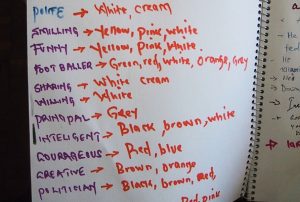 POLITE → White, cream
SMILLING → Yellow, pink, white
FUNNY → Yellow, Pink, White.
FOOT BALLER → Green, red, white, orange, Grey
SHARING → White cream
WILLING → White
PRINCIPAL → Grey
INTELIGENT → Black, brown, white
COURAGEOUS → Red, blue
CREATIVE → Brown, orange
POLITICIAN → Black, brown, red,
Red, pink